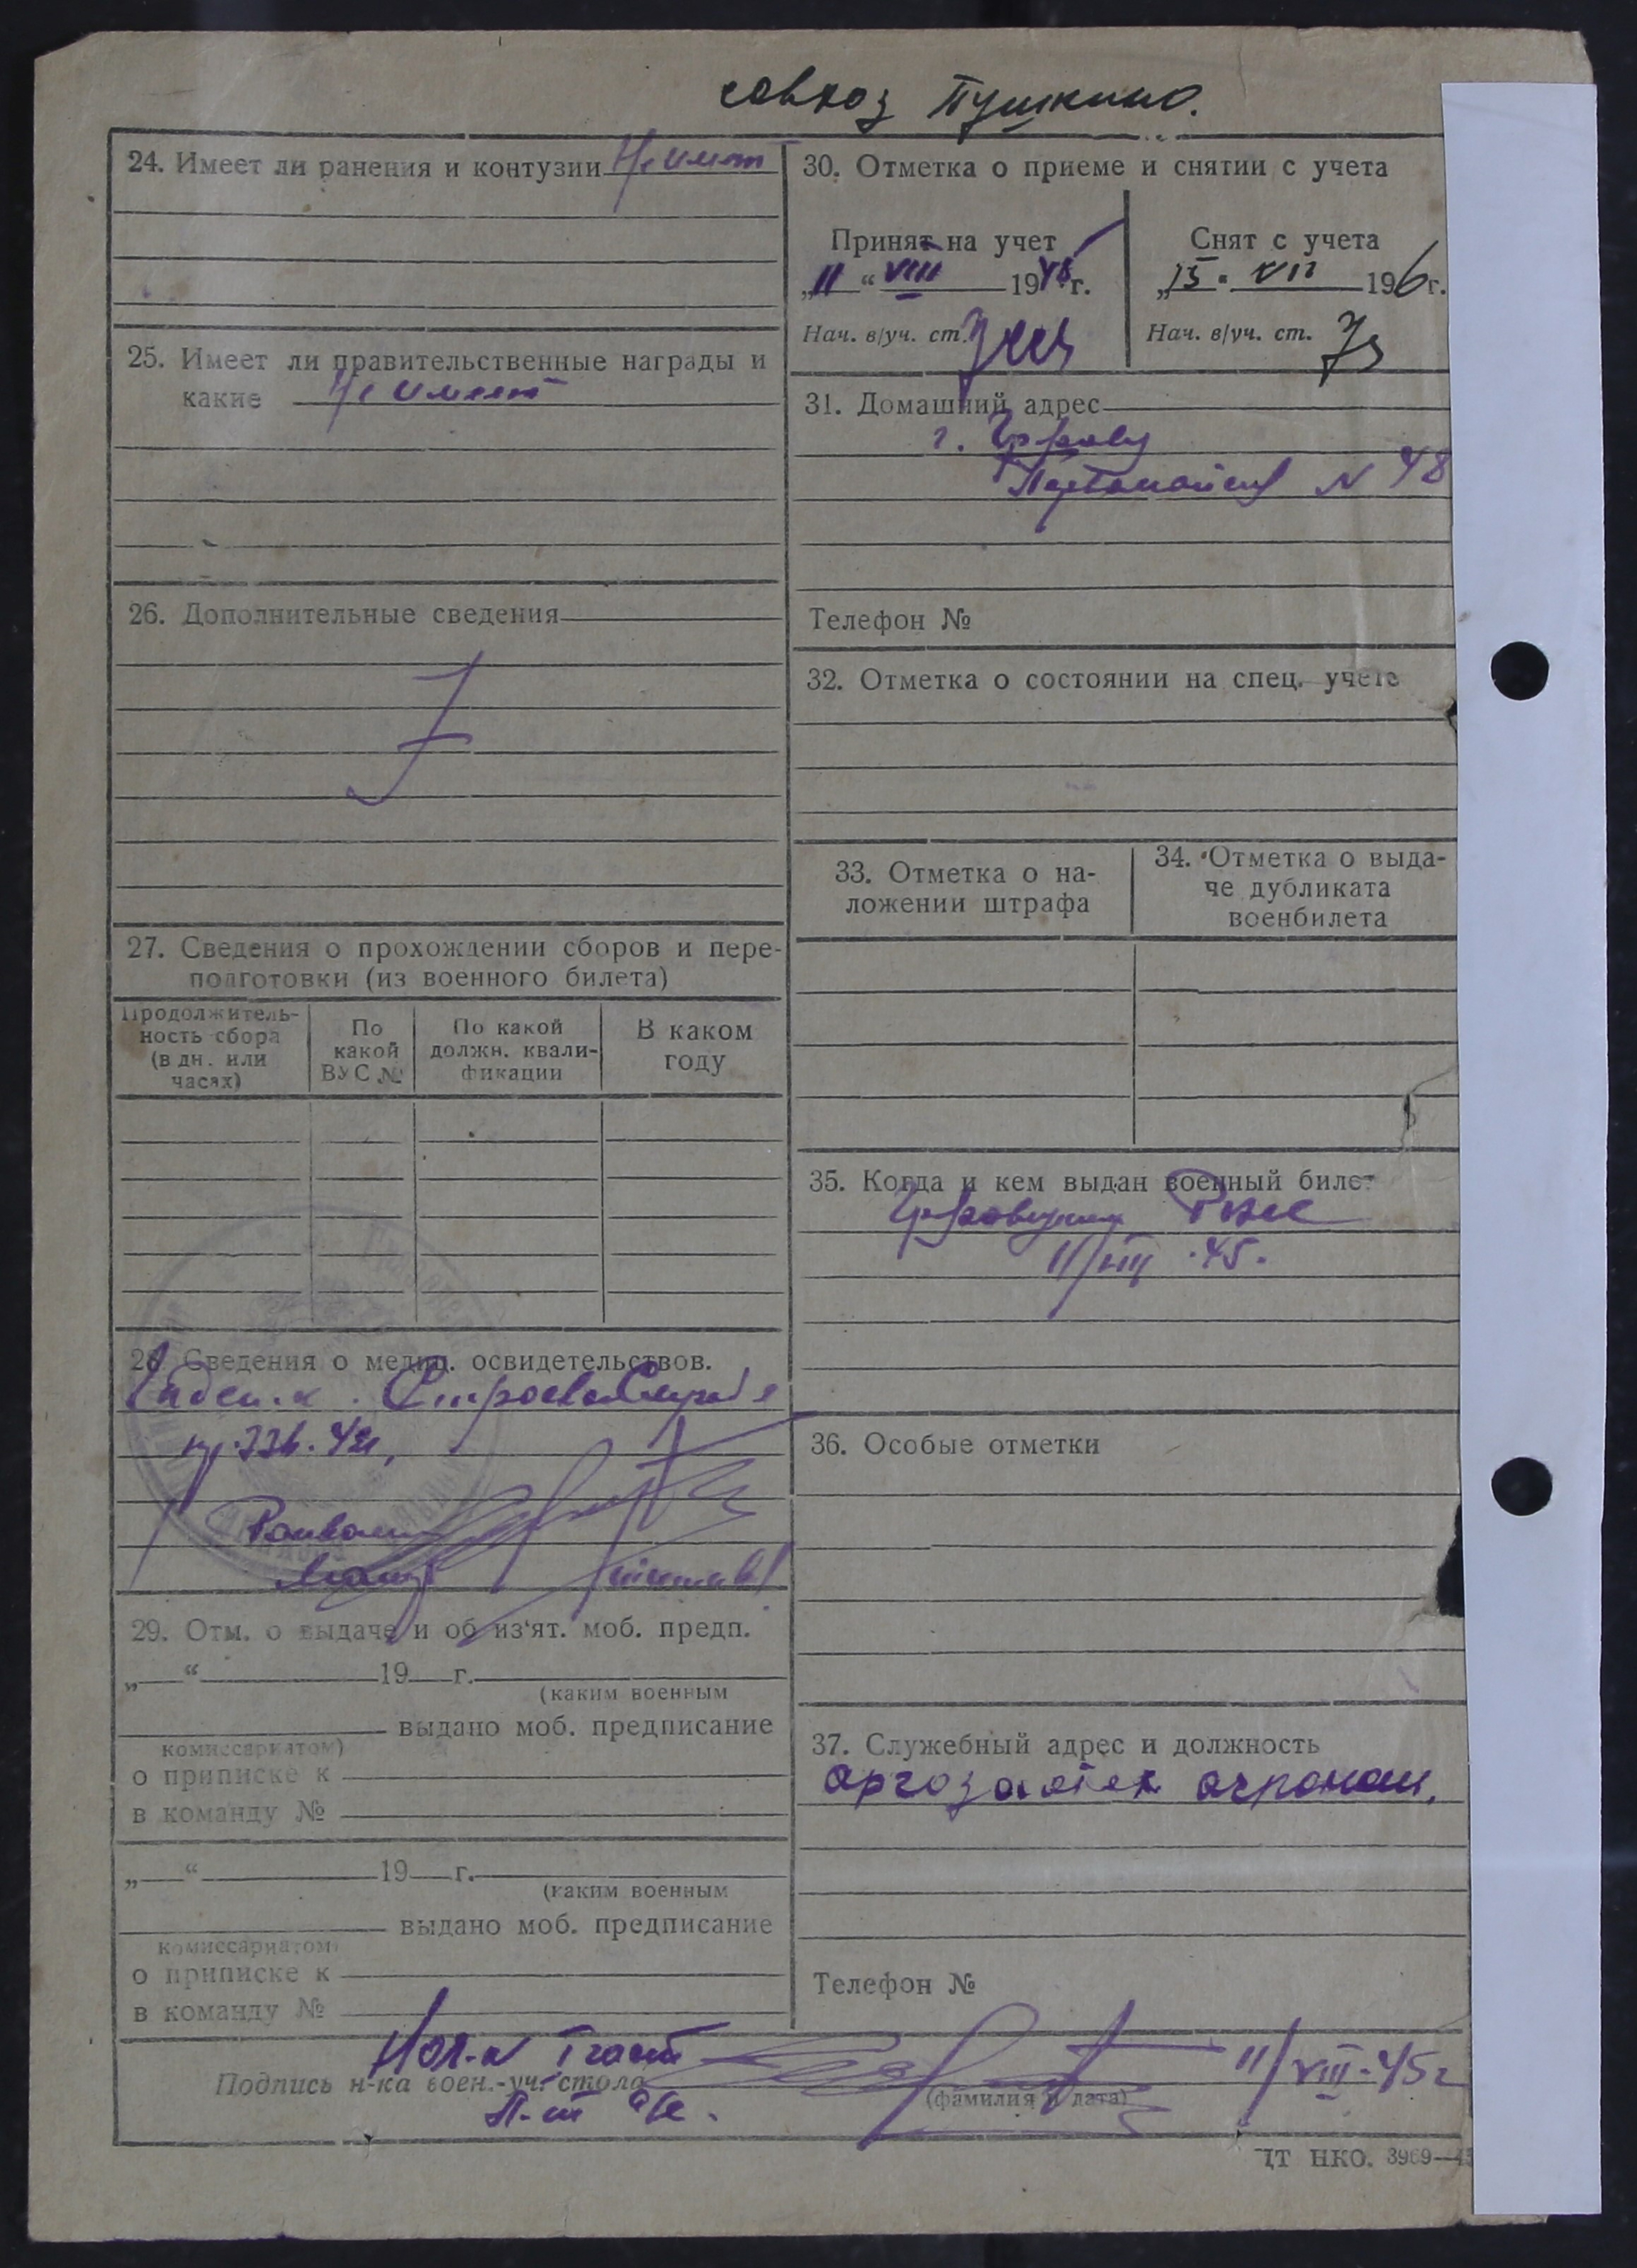 совхоз Пушкино.
24. Имеет ли ранения и контузии Не имеет
25. Имеет ли правительственные награды и
какие Не имеет
26. Дополнительные сведения
27. Сведения о прохождении сборов и пере-
подготовки (из военного билета)
Продолжитель-
ность сбора
(в дн. или
часах)
По
какой
ВУС №
По какой
должн. квали-
фикации
В каком
году
28. Сведения о медиц. освидетельствов.
29. Отм. о выдаче и об из‘ят. моб. предп.
„ “ 19 г.
(каким военным
выдано моб. предписание
комиссариатом)
о приписке к
в команду №
„ “ 19 г.
(каким военным
выдано моб. предписание
комиссариатом)
о приписке к
в команду №
30. Отметка о приеме и снятии с учета
Принят на учет
„11“ VIII 1945 г.
Нач. в/уч. ст.
Снят с учета
„15“ VII 196 г.
Нач. в/уч. ст.
31. Домашний адрес
г.
N 48
Телефон №
32. Отметка о состоянии на спец. учете
33. Отметка о на-
ложении штрафа
34. Отметка о выда-
че дубликата
военбилета
35. Когда и кем выдан военный билет
РВК
11/VIII .45.
36. Особые отметки
37. Служебный адрес и должность
агроном.
Телефон №
Нач-к I части
Подпись н-ка воен.-уч. стола
11/VIII-45г
(фамилия и дата)
ЦТ НКО. 3969—45